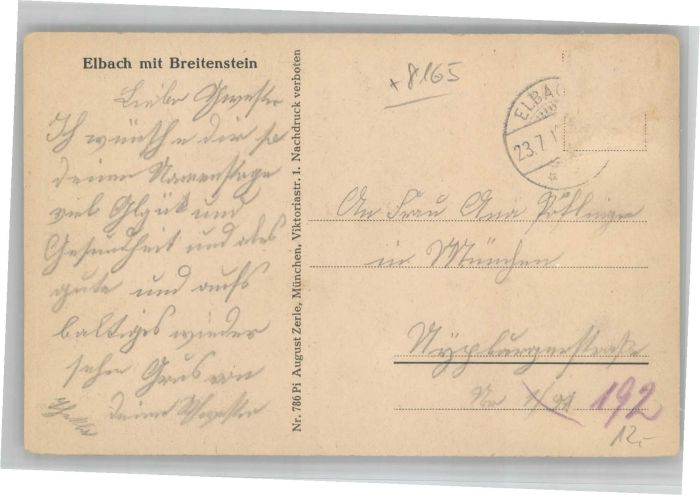 Elbach mit Breitenstein
Liebe Schwester
Ich wünsche dir zu
deinem Namenstage
viel Glück und
Gesundheit und ales
gute und aufs
baltiges wieder
sehn Grus von
deine Schwester
Nr. 786 Pi August Zerle, München, Viktoriastr. 1. Nachdruck verboten
+8165
ELBAC
23.7.1
An Frau Ana
in München
Nr 192
12.-